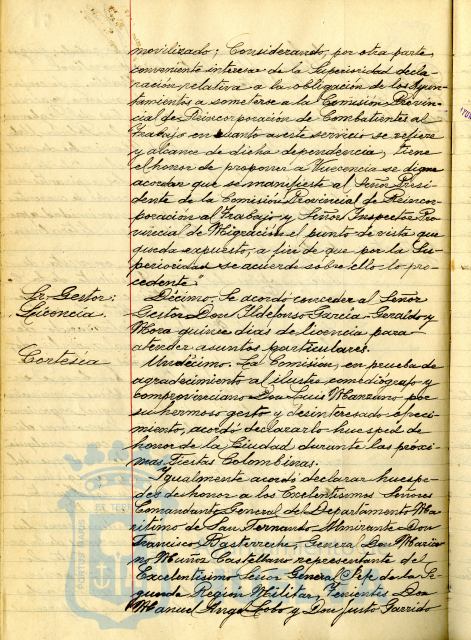 movilizado; Considerando, por otra parte,
conveniente interesar de la Superioridad decla-
ración relativa a la obligación de los Ayun-
tamientos a someterse a la Comisión Provin-
cial de Reincorporación de Combatientes al
trabajo en cuanto a este servicio se refiere
y alcance de dicha dependencia, tiene
el honor de proponer a Vuecencia se digne
acordar que se manifieste al Señor Presi-
dente de la Comisión Provincial de Reincor-
poración al Trabajo y Señor Inspector Pro
vincial de Migración el punto de vista que
queda expuesto, a fin de que por la Su-
perioridad se acuerde sobre ello lo pro-
cedente.
Sr. Gestor:
Licencia.
Décimo. Se acordó conceder al Señor
Gestor Don Ildefonso García-Geraldo y
Mora quince días de licencia para
atender asuntos particulares.
Cortesía
Undécimo. La Comisión, en prueba de
agradecimiento al ilustre comediógrafo y
comprovinciano Don Luis Manzano por
su hermoso gesto y desinteresado ofreci-
miento, acordó declararlo huésped de
honor de la Ciudad durante las próxi-
mas Fiestas Colombinas.
Igualmente acordó declarar huéspe-
des de honor a los Excelentísimos Señores
Comandante General del Departamento Ma
rítimo de San Fernando Almirante Don
Francisco Bastarreche, General Don Maria
no Muñoz Castellano representante del
Excelentísimo Señor General Jefe de la Se
gunda Región Militar, Tenientes Don
Manuel Angel Cobo y Don Justo Garrido